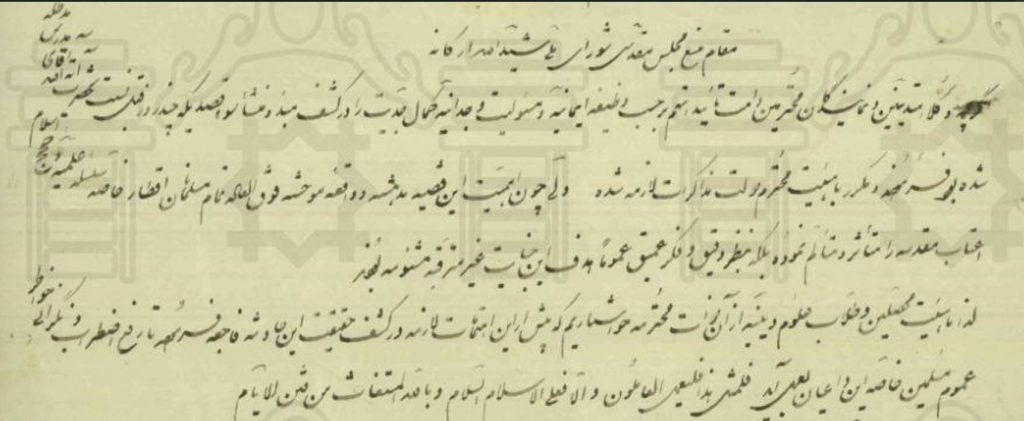 مقام منیع مجلس مقدس شورای ملی شید الله ارکانه
وکلاء متدینین و نمایندگان محترمین دامت تأییداتهم برحسب وظیفه ایمانیه و مسئولیت وجدانیه کمال جدیت را در کشف مبدء و منشأ سوء قصدیکه چندی قبل نسبت بحضرت
شده بود فرموده و مکرر با هیئت محترم دولت مذاکرات لازمه شده ولی چون اهمیت این قضیه مدهشه و واقعه موحشه فوق العاده تمام مسلمانان اقطار خاصه
اعتاب مقدسه را متأثر و متألم نموده بلکه بنظر دقیق و فکر عمیق عموماً هدف این جنایت غیر مترقبه مشئومه
لذا هیئت محصلین و طلاب علوم دینیه از آن ذوات محترمه خواستاریم که بیش از این اهتمامات لازمه در کشف حقیقت این حادثه فاجعه فرموده تا رفع اضطراب و نگرانی خواطر
عموم مسلمین خاصه این داعیان بعمل آید فلمثل هذا فلیعمل العاملون و الا فعلی الاسلام السلام و بالله المستغاث من فتن الایام
مدظله
آیة الله
سلسله علمیه
حجج اسلام